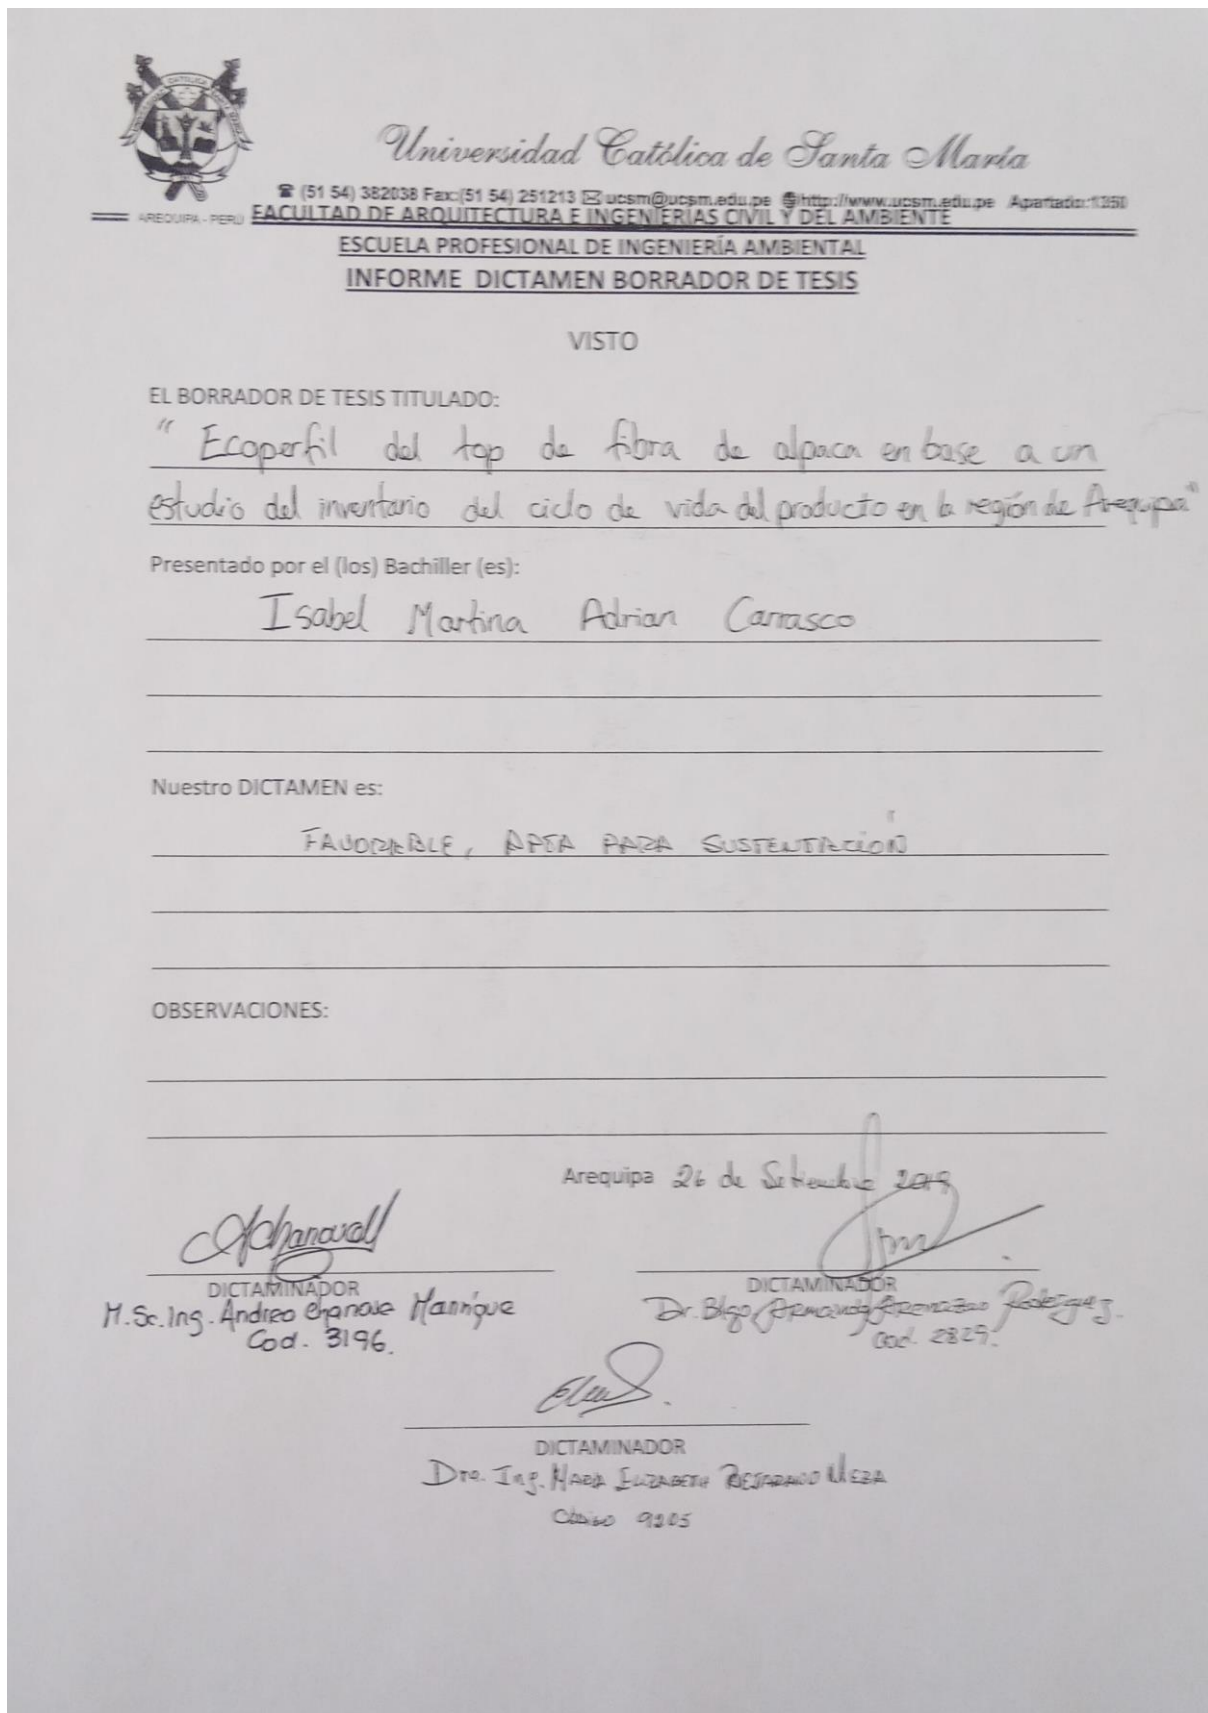 Universidad Católica de Santa María
☎ (51 54) 382038 Fax:(51 54) 251213 ✉ ucsm@ucsm.edu.pe http://www.ucsm.edu.pe Apartado:1350
AREQUIPA - PERÚ FACULTAD DE ARQUITECTURA E INGENIERIAS CIVIL Y DEL AMBIENTE
ESCUELA PROFESIONAL DE INGENIERÍA AMBIENTAL
INFORME DICTAMEN BORRADOR DE TESIS
VISTO
EL BORRADOR DE TESIS TITULADO:
" Ecoperfil del top de fibra de alpaca en base a un
estudio del inventario del ciclo de vida del producto en la región de Arequipa"
Presentado por el (los) Bachiller (es):
Isabel Martina Adrian Carrasco
Nuestro DICTAMEN es:
FAVORABLE, APTA PARA SUSTENTACIÓN
OBSERVACIONES:
Arequipa 26 de Setiembre 2019
DICTAMINADOR
M.Sc. Ing. Andrea Chanove Manrique
Cod. 3196.
DICTAMINADOR
Dr. Blgo. Armando Arenazas Rodriguez.
Cod. 2829.
DICTAMINADOR
Dra. Ing. MARÍA ELIZABETH BEJARANO MEZA
9205